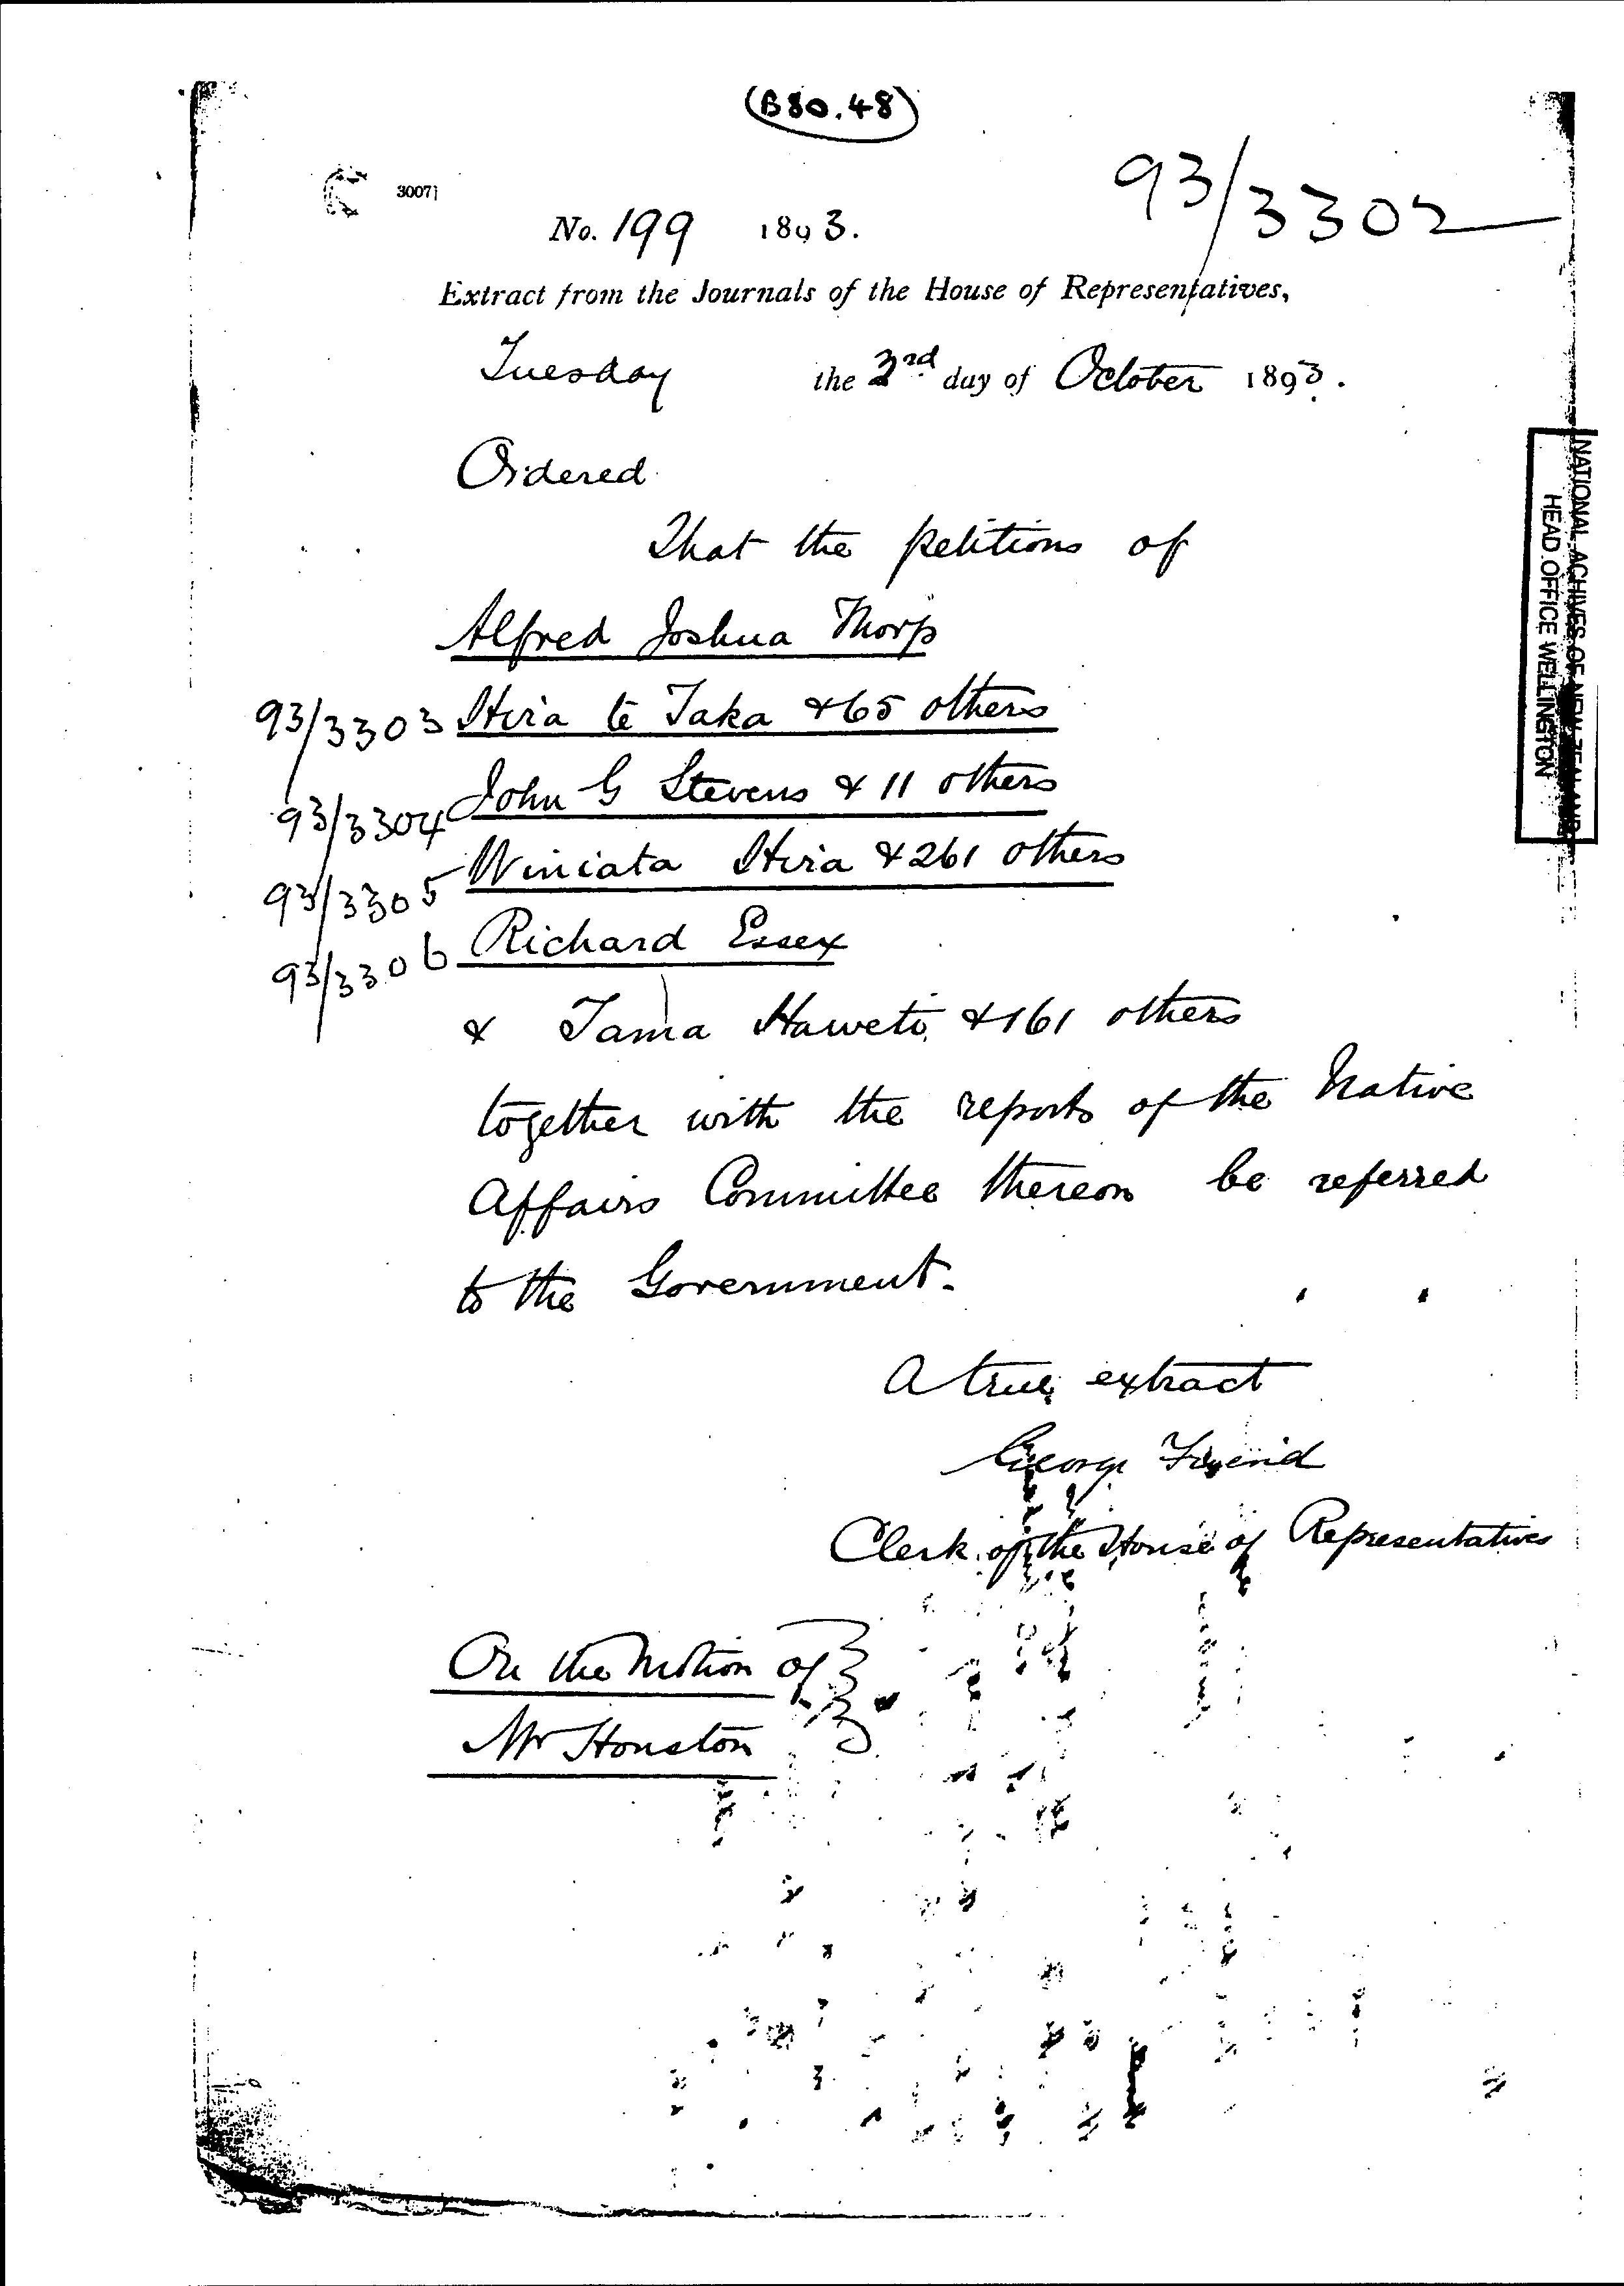 (B80.48)
93/3302
3007]
No. 199 1893.
Extract from the Journals of the House of Representatives,
Tuesday the 3rd day of October 1893.
Ordered
That the petitions of
Alfred Joshua Thorp
93/3303 Hira te Taka & 65 others
93/3304 John G Stevens & 11 others
93/3305 Winiata Hira & 261 others
93/3306 Richard Essex
& Tama Haweti & 161 others
together with the reports of the Native
Affairs Committee thereon be referred
to the Government.
A true extract
George Friend
Clerk of the House of Representatives
On the Motion of
Mr Houston
NATIONAL ACHIVES OF NEW ZEALAND
HEAD OFFICE WELLINGTON